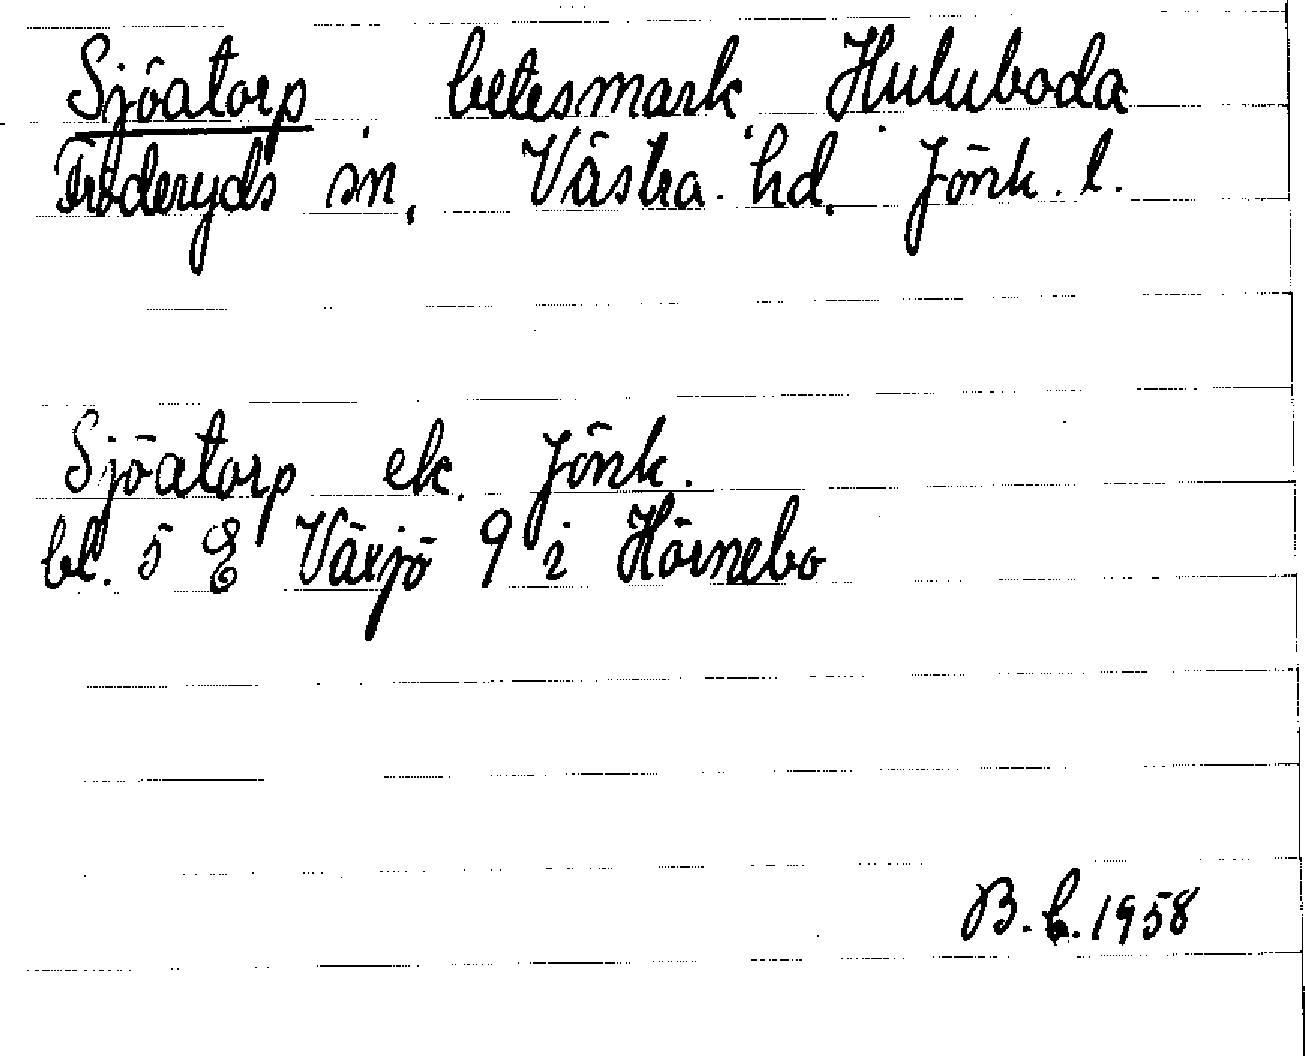 Sjöatorp betesmark Huluboda
Fröderyds sn. Västra hd. Jönk. l.
Sjöatorp ek. Jönk.
bl. 5 E Växjö 9 i Hörnebo
B. E. 1958